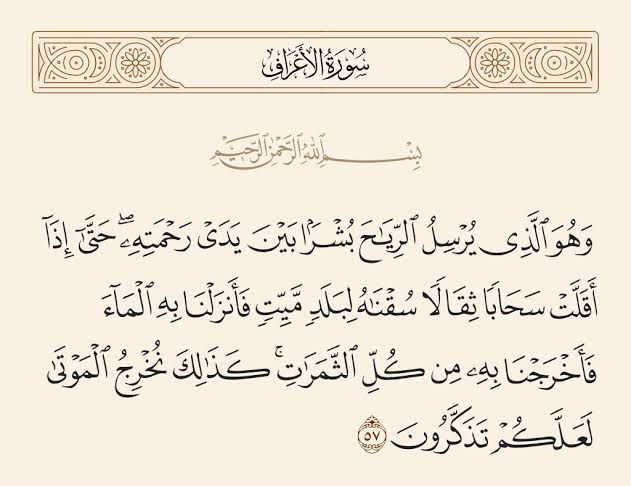 سُورَةُ الأَعْرَافِ
بِسْمِ ٱللَّهِ ٱلرَّحْمَٰنِ ٱلرَّحِيمِ
وَهُوَ ٱلَّذِى يُرْسِلُ ٱلرِّيَٰحَ بُشْرًۢا بَيْنَ يَدَىْ رَحْمَتِهِۦ ۖ حَتَّىٰٓ إِذَآ
أَقَلَّتْ سَحَابًا ثِقَالًا سُقْنَٰهُ لِبَلَدٍ مَّيِّتٍ فَأَنزَلْنَا بِهِ ٱلْمَآءَ
فَأَخْرَجْنَا بِهِۦ مِن كُلِّ ٱلثَّمَرَٰتِ ۚ كَذَٰلِكَ نُخْرِجُ ٱلْمَوْتَىٰ
لَعَلَّكُمْ تَذَكَّرُونَ ٥٧